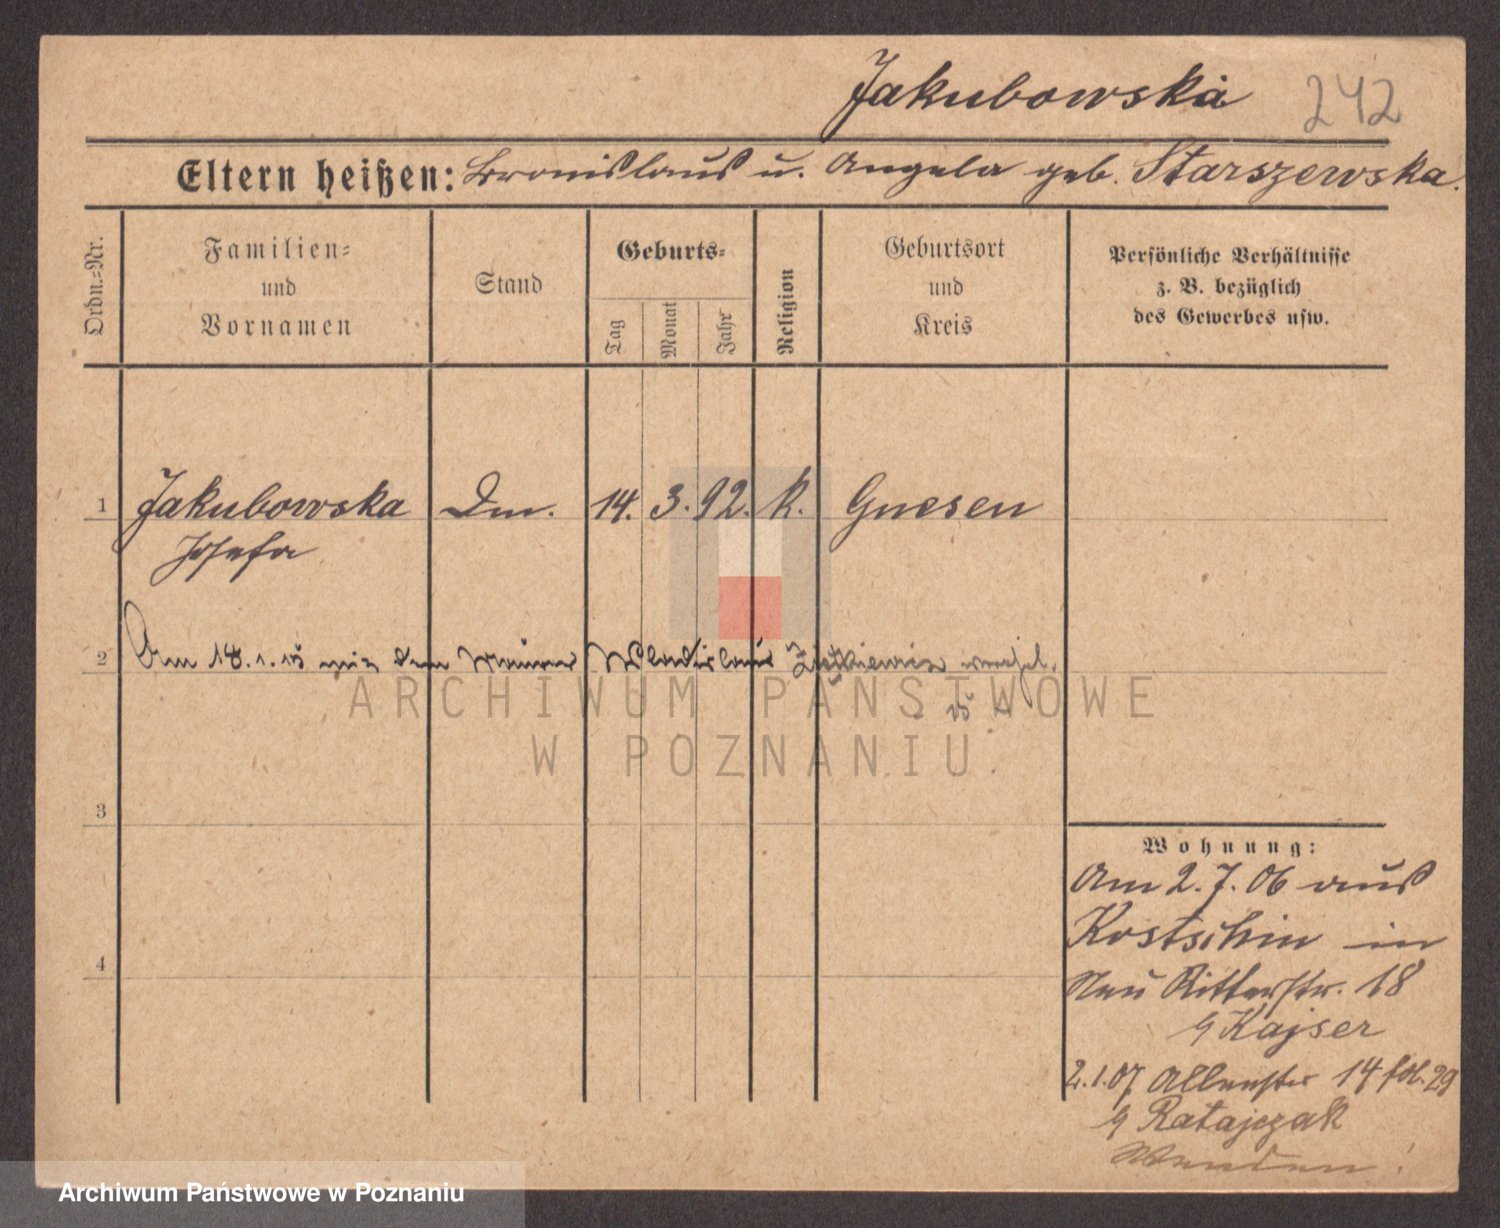 Jakubowska 242
Eltern heißen: Bronislaus u. Angela geb. Starszewska.
Ordn.-Nr.
Familien- und Vornamen
Stand
Geburts-
Tag
Monat
Jahr
Religion
Geburtsort und Kreis
Persönliche Verhältnisse
z. B. bezüglich
des Gewerbes usw.
1 Jakubowska Dm. 14. 3. 92. k. Gnesen
Josefa
2 Am 18.1.15 mit dem Maurer Wladislaus verehel.
ARCHIWUM PAŃSTWOWE
W POZNANIU
3
4
Wohnung:
Am 2.7.06 aus
Kostschin in
Neu Ritterstr. 18
Kajser
2.1.07 14 fol. 29
Ratajczak
Archiwum Państwowe w Poznaniu